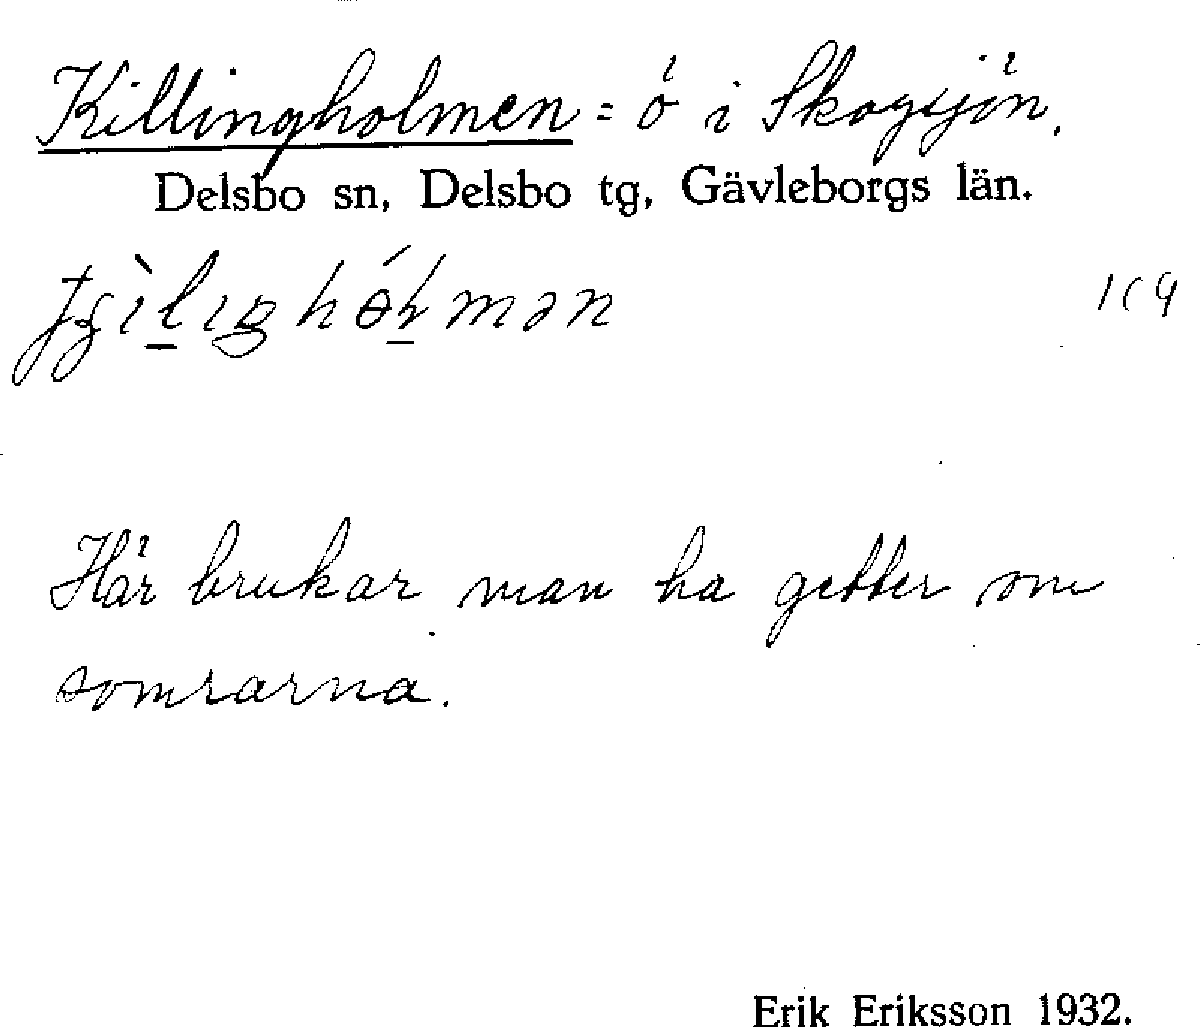 Killingholmen = ö i Skogsjön.
Delsbo sn, Delsbo tg, Gävleborgs län.
Här brukar man ha getter om
somrarna.
Erik Eriksson 1932.